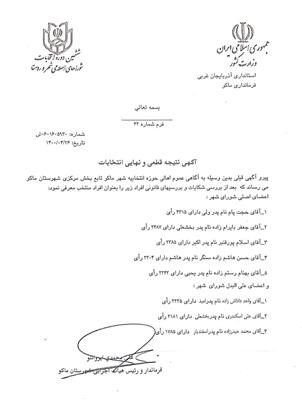 جمهوری اسلامی ایران
وزارت کشور
استانداری آذربایجان غربی
فرمانداری ماکو
ششمین دوره انتخابات
شوراهای اسلامی شهر و روستا
بسمه تعالی
فرم شماره ۴۳
تاریخ: ۱۴۰۰/۰۴/۲۶
آگهی نتیجه قطعی و نهایی انتخابات
پیرو آگهی قبلی بدین وسیله به آگاهی عموم اهالی حوزه انتخابیه شهر ماکو تابع بخش مرکزی شهرستان ماکو
می رساند که بعد از بررسی شکایات و بررسیهای قانونی افراد زیر را بعنوان افراد منتخب معرفی نمود:
اعضای اصلی شورای شهر:
۱_آقای حجت پام نام پدر ولی دارای ۴۳۱۵ رأی
۲_آقای جعفر بایرام زاده نام پدر بخشعلی دارای ۲۳۸۷ رأی
۳_آقای اسلام پورقنبر نام پدر اکبر دارای ۲۳۸۵ رأی
۴_آقای حسن هاشم سنگر نام پدر هاشم دارای ۲۳۰۴ رأی
۵_آقای بهنام رستم زاده نام پدر یحیی دارای ۲۲۴۲ رأی
و اعضای علی البدل شورای شهر:
۱_آقای واحد داداش زاده نام پدر امید دارای ۲۲۲۵ رأی
۲_آقای علی اسکندری نام پدر بخشعلی دارای ۲۱۸۱ رأی
۳_آقای محمد حیدرزاده نام پدر اسفندیار دارای ۱۷۸۵ رأی
محمدی ابروانلو
فرماندار و رئیس هیات اجرایی شهرستان ماکو